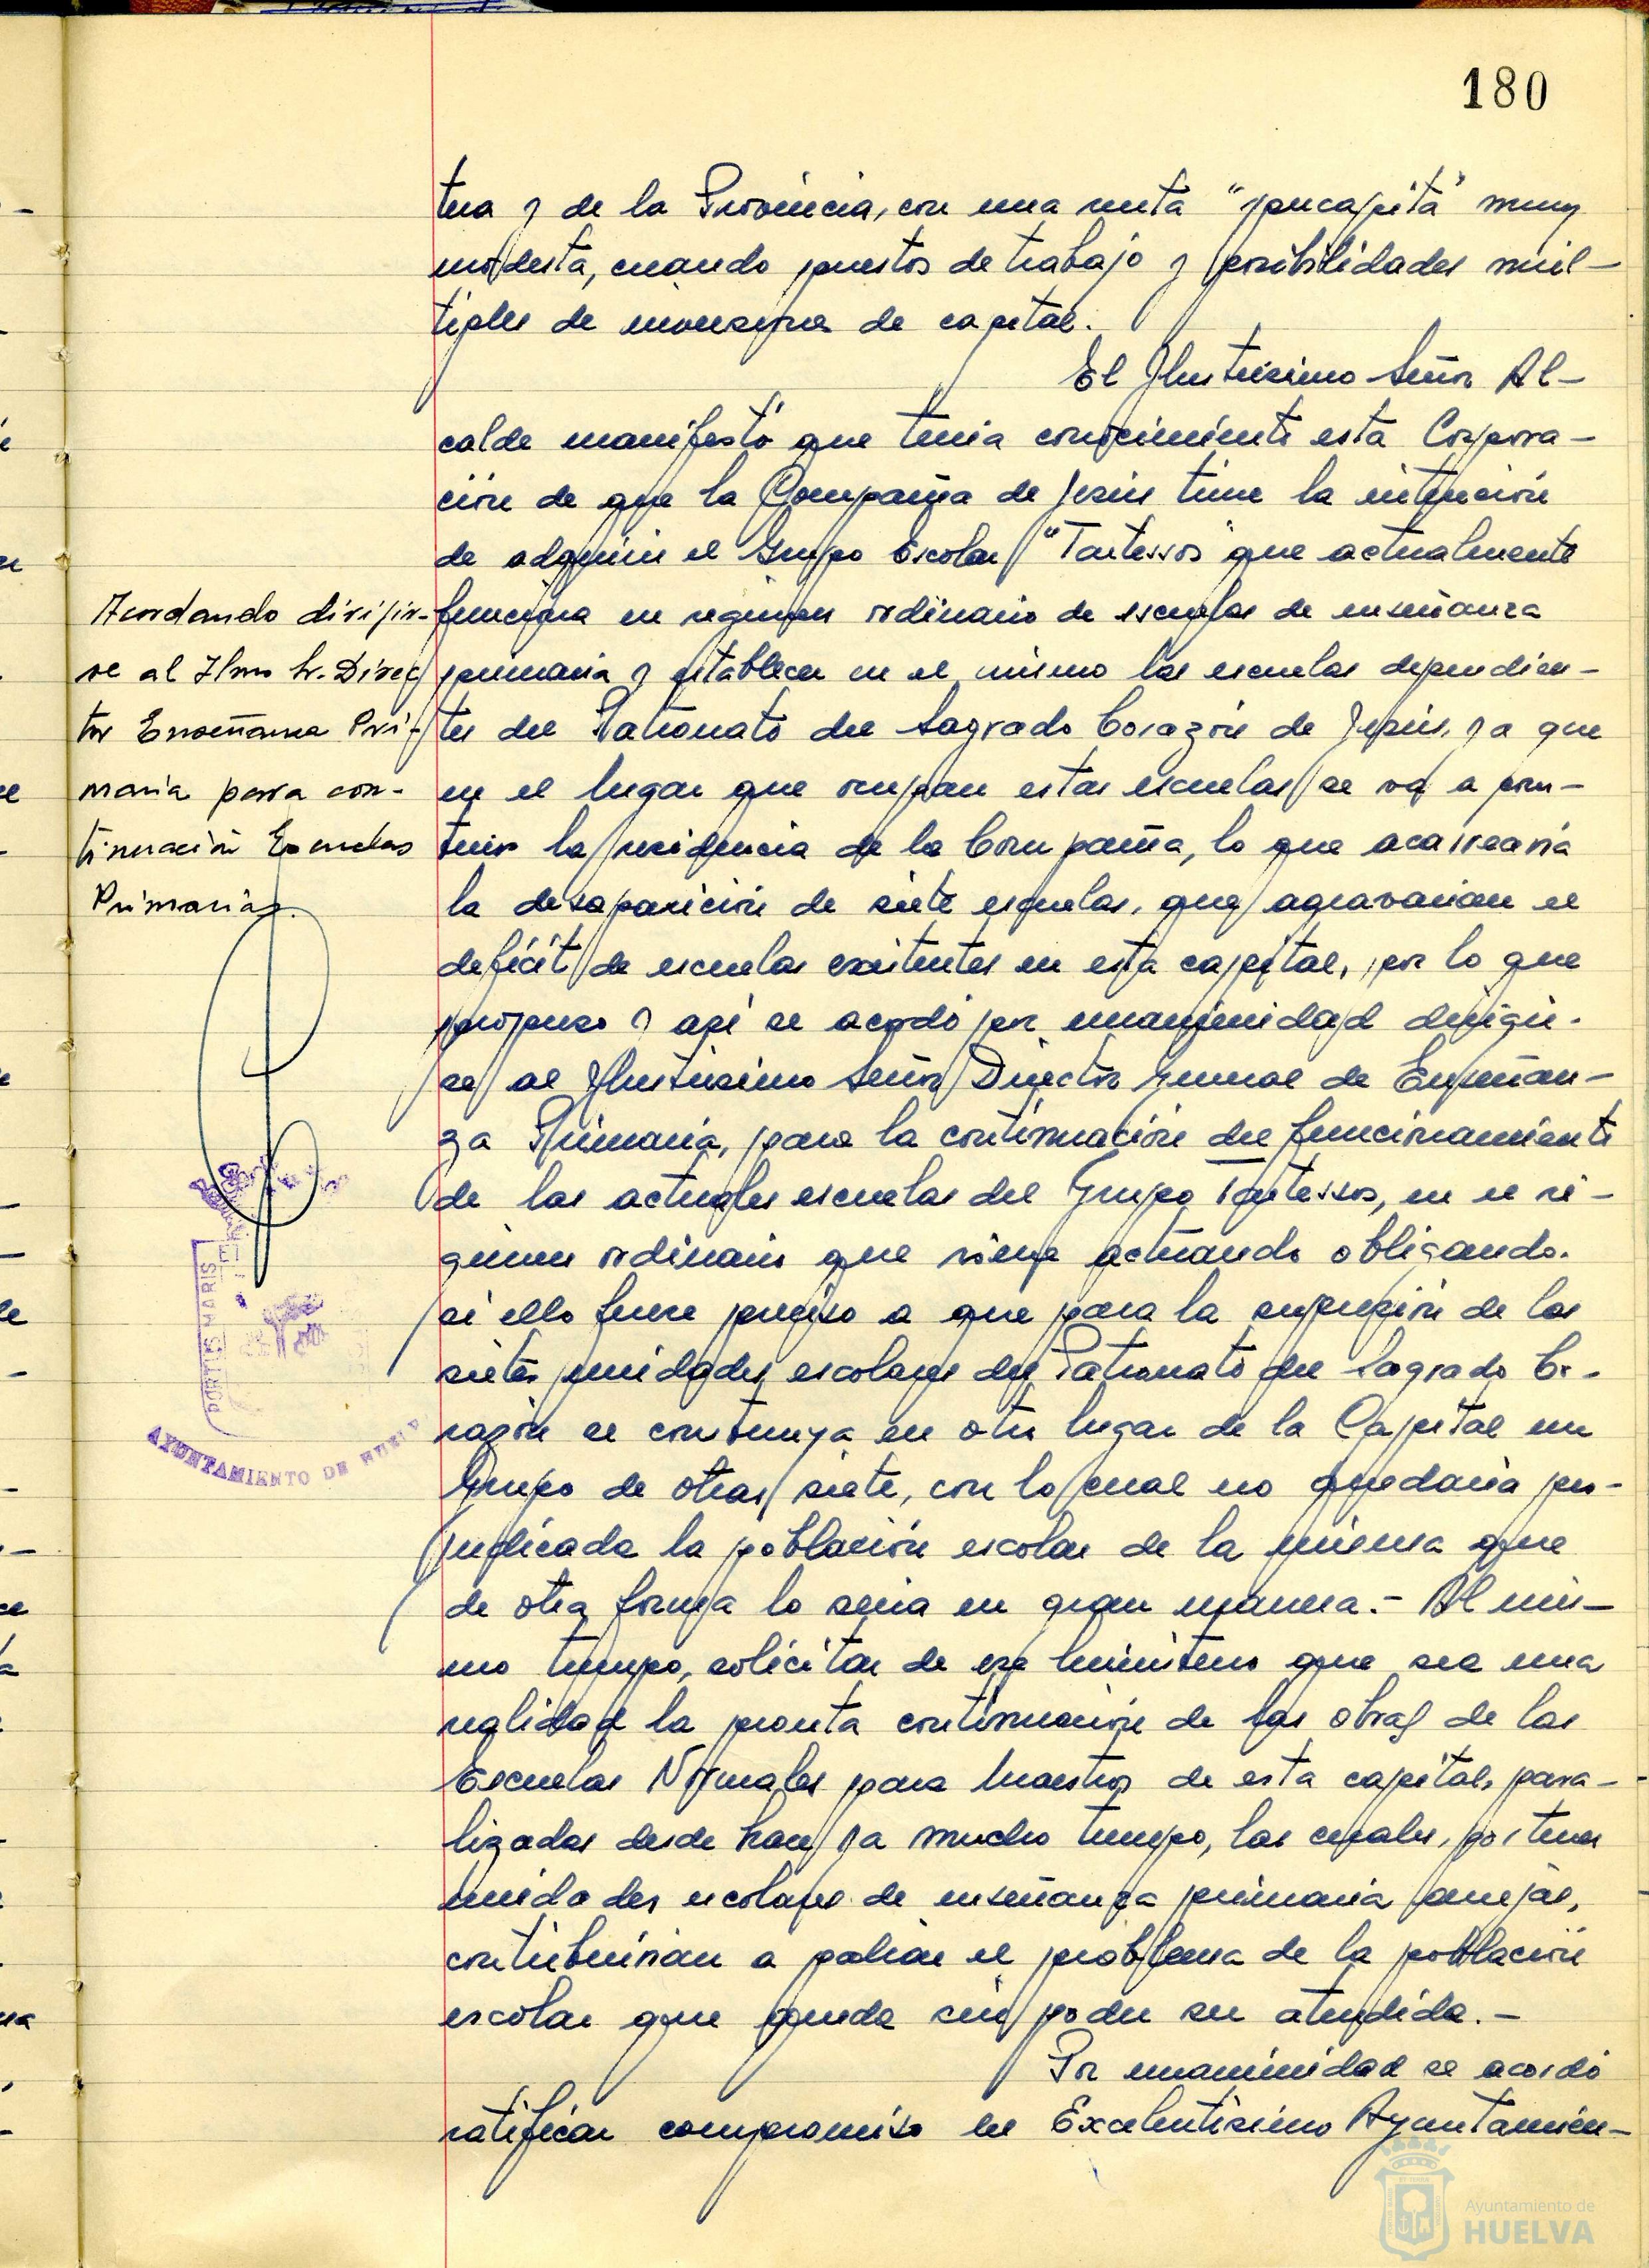 180
tura y de la Provincia, con una renta "percapita" muy
modesta, creando puestos de trabajo y posibilidades múl-
tiples de inversiones de capital.
El Ilustrísimo Señor Al-
calde manifestó que tenia conocimiento esta Corpora-
ción de que la Compañia de Jesús tiene la intención
de adquirir el Grupo Escolar "Tartessos" que actualmente
funciona en regimen ordinario de escuelas de enseñanza
primaria y establecer en el mismo las escuelas dependien-
tes del Patronato del Sagrado Corazón de Jesús, ya que
en el lugar que ocupan estas escuelas se va a cons-
truir la residencia de la Compañia, lo que acarrearia
la desaparición de siete escuelas, que agravarian el
deficit de escuelas existentes en esta capital, por lo que
propuso y asi se acordó por unanimidad dirigir-
se al Ilustrisimo Señor Director General de Enseñan-
za Primaria, para la continuación del funcionamiento
de las actuales escuelas del Grupo Tartessos, en el ré-
gimen ordinario que viene actuando obligando.
si ello fuere preciso a que para la supresión de las
siete unidades escolares del Patronato del Sagrado Co-
razón se construya en otro lugar de la Capital un
Grupo de otras siete, con lo cual no quedaria per-
judicada la población escolar de la misma que
de otra forma lo seria en gran manera.- Al mis-
mo tiempo, solicitar de ese Ministerio que sea una
realidad la pronta continuación de las obras de las
Escuelas Normales para Maestros de esta capital, para-
lizadas desde hace ya mucho tiempo, las cuales, por tener
unidades escolares de enseñanza primaria anejas,
contribuirian a paliar el problema de la población
escolar que queda sin poder ser atendida.-
Por unanimidad se acordó
ratificar compromiso del Excelentísimo Ayuntamien-
Acordando dirigir-
se al Ilmo Sr. Direc
tor Enseñanza Pri-
maria para con-
tinuación Escuelas
Primarias.
PORTUS MARIS
ET
AYUNTAMIENTO DE HUELVA
Ayuntamiento de
HUELVA